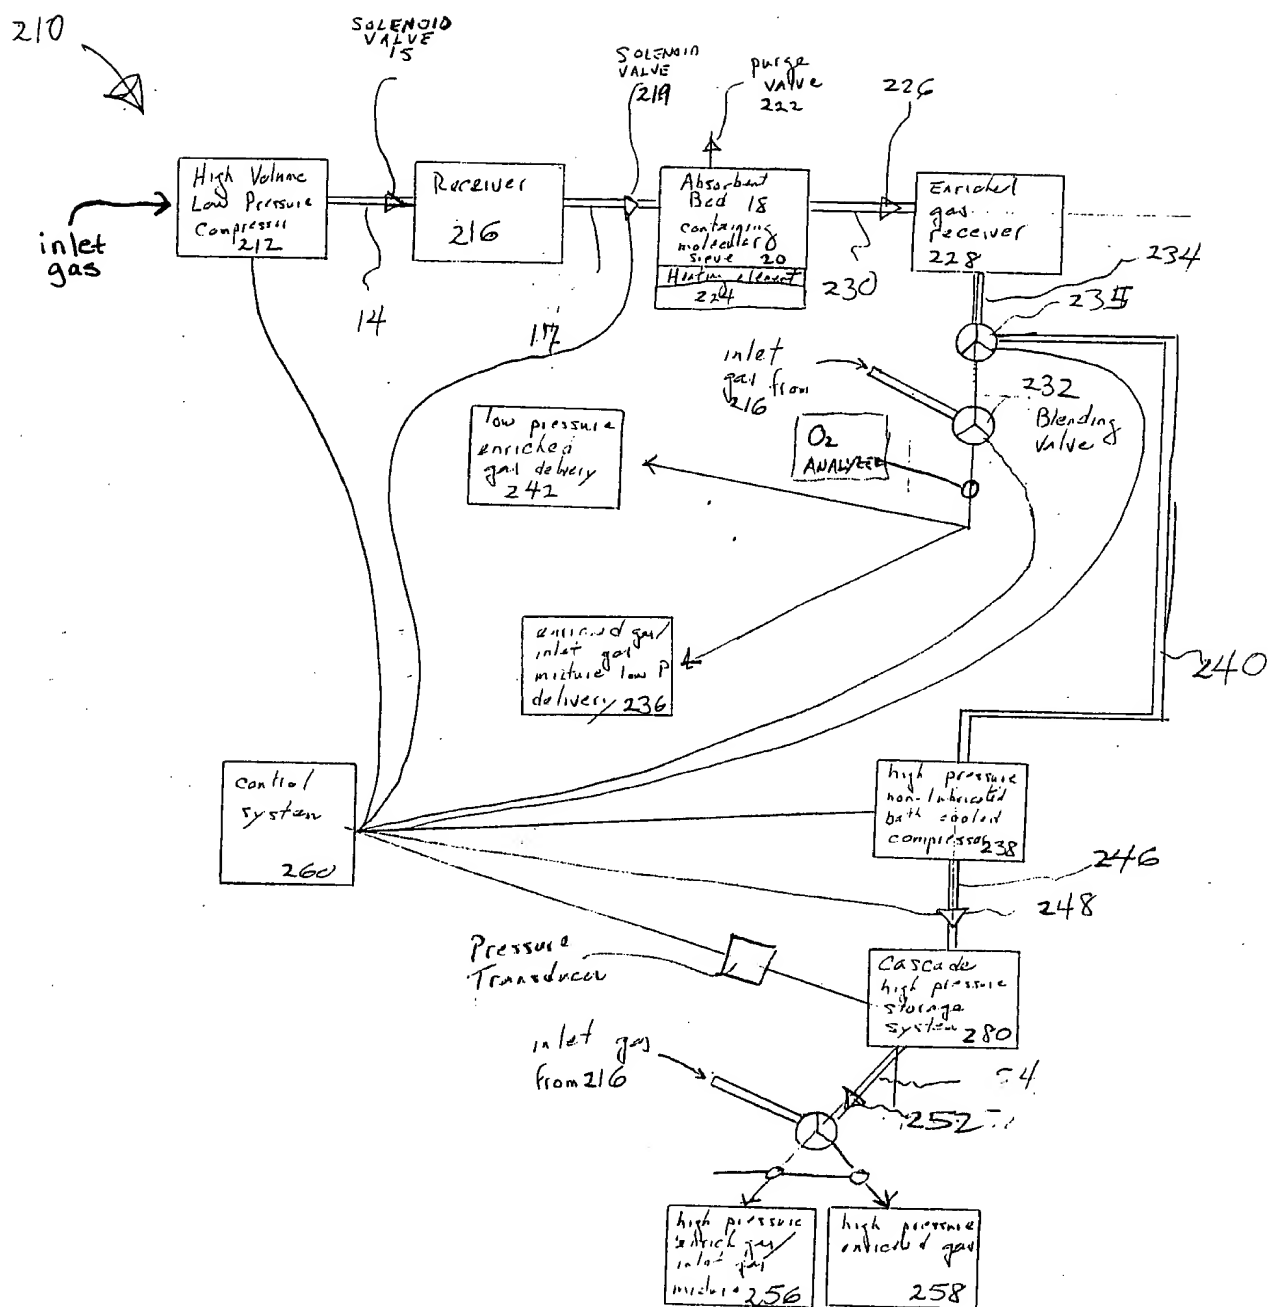 210
SOLENOID
VALVE
15
SOLENOID
VALVE
219
purge
valve
222
226
inlet
gas
High Volume
Low Pressure
Compressor
212
Receiver
216
Absorbent
Bed 18
containing
molecular
sieve 20
Heating element
224
Enriched
gas
receiver
228
14
17
230
234
235
inlet
gas from
216
232
Blending
valve
O2
ANALYZER
low pressure
enriched
gas delivery
242
enriched gas/
inlet gas
mixture low P
delivery 236
240
control
system
260
high pressure
non-lubricated
bath cooled
compressor 238
246
248
Pressure
Transducer
Cascade
high pressure
storage
system 280
inlet gas
from 216
252
high pressure
enrich gas/
inlet gas
mixture 256
high pressure
enriched gas
258